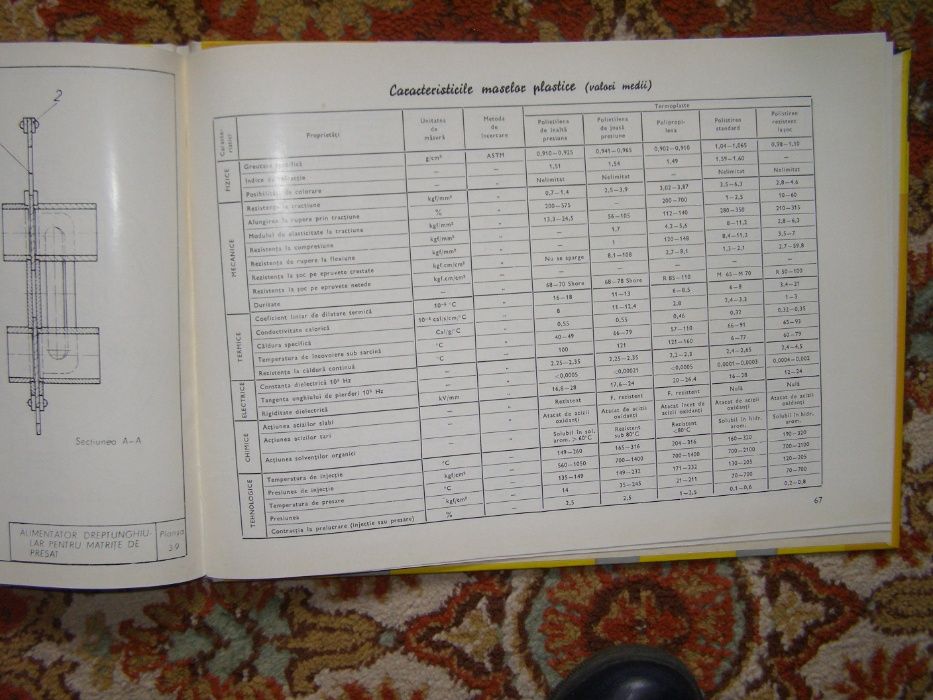 2
Secțiunea A-A
ALIMENTATOR DREPTUNGHIU-
LAR PENTRU MATRIȚE DE
PRESAT
Planșa
39
Caracteristicile maselor plastice (valori medii)
Proprietăți
Unitatea
de
măsură
Metoda
de
încercare
Termoplaste
Polietilena
de înaltă
presiune
Polietilena
de joasă
presiune
Polipropi-
lena
Polistiren
standard
Polistiren
rezistent
la șoc
FIZICE
Greutate specifică g/cm³ ASTM 0,910—0,925 0,941—0,965 0,902—0,910 1,04—1,065 0,98—1,10
Indice de refracție — 1,51 1,54 1,49 1,59—1,60 —
Posibilități de colorare — Nelimitat Nelimitat — Nelimitat Nelimitat
MECANICE
Rezistența la tracțiune kgf/mm² 0,7—1,4 2,5—3,9 3,02—3,87 3,5—6,3 2,8—4,6
Alungirea la rupere prin tracțiune % 200—575 — 200—700 1—2,5 10—60
Modulul de elasticitate la tracțiune kgf/mm² 13,3—24,5 56—105 112—140 280—350 210—315
Rezistența la compresiune kgf/mm² — 1,7 4,2—5,6 8—11,2 2,8—6,3
Rezistența de rupere la flexiune kgf/mm²
Rezistența la șoc pe epruvete crestate kgf·cm/cm²
Nu se sparge 8,1—108
Rezistența la șoc pe epruvete netede kgf·cm/cm²
Duritate — 68—70 Shore 68—78 Shore R 85—110 M 65—M 70 R 50—100
TERMICE
Coeficient liniar de dilatare termică 16—18 11—13
Conductivitate calorică 8 11—12,4 2,8
Căldura specifică Cal/g/°C 0,55 0,55 0,46 0,32 0,32—0,35
Temperatura de încovoiere sub sarcină °C 40—49 66—79 57—110 66—91 65—93
Rezistența la căldură continuă °C 100 121 121—160 6—77 60—79
ELECTRICE
Constanta dielectrică 2,25—2,35 2,25—2,35 2,2—2,3 2,4—2,65 2,4—4,5
Tangenta unghiului de pierderi — <0,0005 <0,00021 <0,0005 0,0001—0,0003 0,0004—0,002
Rigiditate dielectrică kV/mm 16,8—28 17,6—24 20—26,4 16—28 12—24
CHIMICE
Acțiunea acizilor slabi — Rezistent F. rezistent F. rezistent Nulă Nulă
Acțiunea acizilor tari — Atacat de acizii oxidanți Atacat de acizii oxidanți Atacat încet de acizii oxidanți Atacat de acizii oxidanți Atacat de acizii oxidanți
Acțiunea solvenților organici — Solubil în sol. arom. > 60°C Rezistent sub 80°C Rezistent <80°C Solubil în hidr. arom. Solubil în hidr. arom.
TEHNOLOGICE
Temperatura de injecție °C 149—260 165—316 204—316 160—320 190—320
Presiunea de injecție kgf/cm² 560—1050 700—1400 700—1400 700—2100 700—2100
Temperatura de presare °C 135—149 149—232 171—232 130—205 120—205
Presiunea kgf/cm² 14 35—245 21—211 70—700 70—700
Contracția la prelucrare (injecție sau presare) % 2,5 2,5 1—2,5 0,1—0,6 0,2—0,8
67